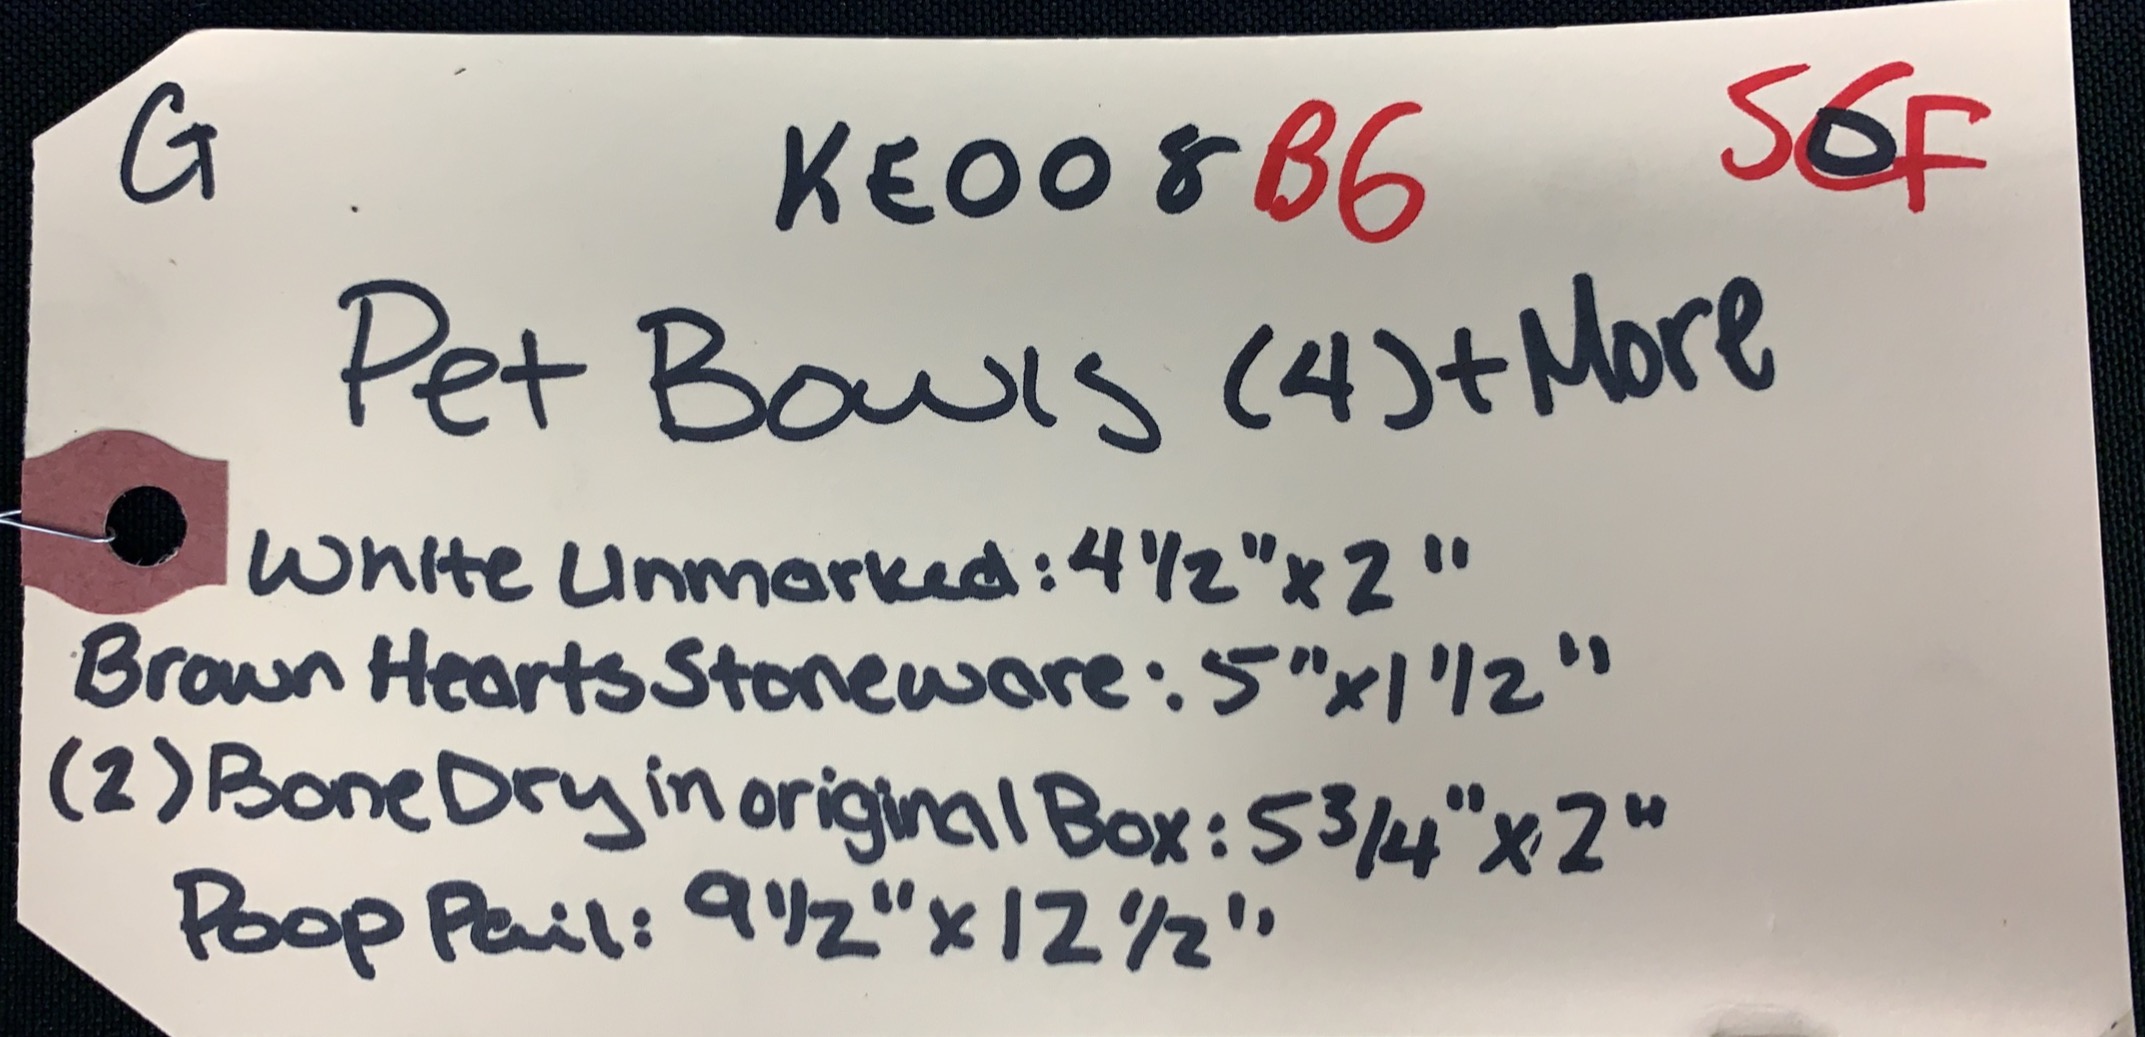 G KE008 B6 S6F
Pet Bowls (4) + More
White Unmarked: 4 1/2" x 2"
Brown Hearts Stoneware: 5" x 1 1/2"
(2) Bone Dry in original Box: 5 3/4" x 2"
Poop Pail: 9 1/2" x 12 1/2"